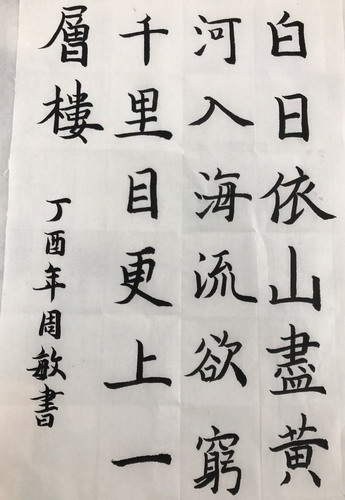 白日依山盡黃
河入海流欲窮
千里目更上一
層樓
丁酉年周敏書